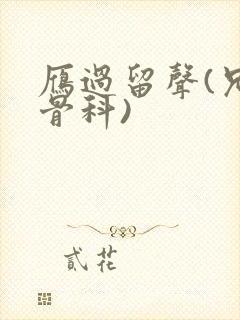 雁過留聲(兄
骨科)
貳花